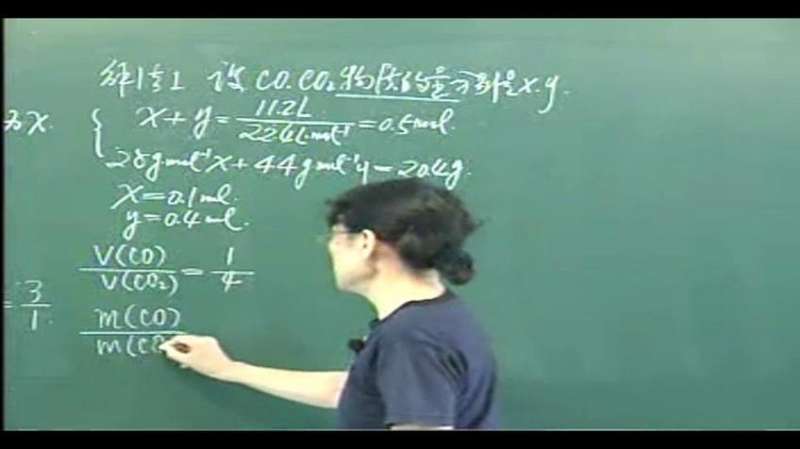 解 1 设 CO.CO₂物质的量分别是x.y.
为x.
x+y=11.2L/22.4L·mol⁻¹=0.5mol.
28g·mol⁻¹x+44g·mol⁻¹y=20.4g.
x=0.1mol.
y=0.4mol.
V(CO)/V(CO₂)=1/4
=3/1
m(CO)
m(CO